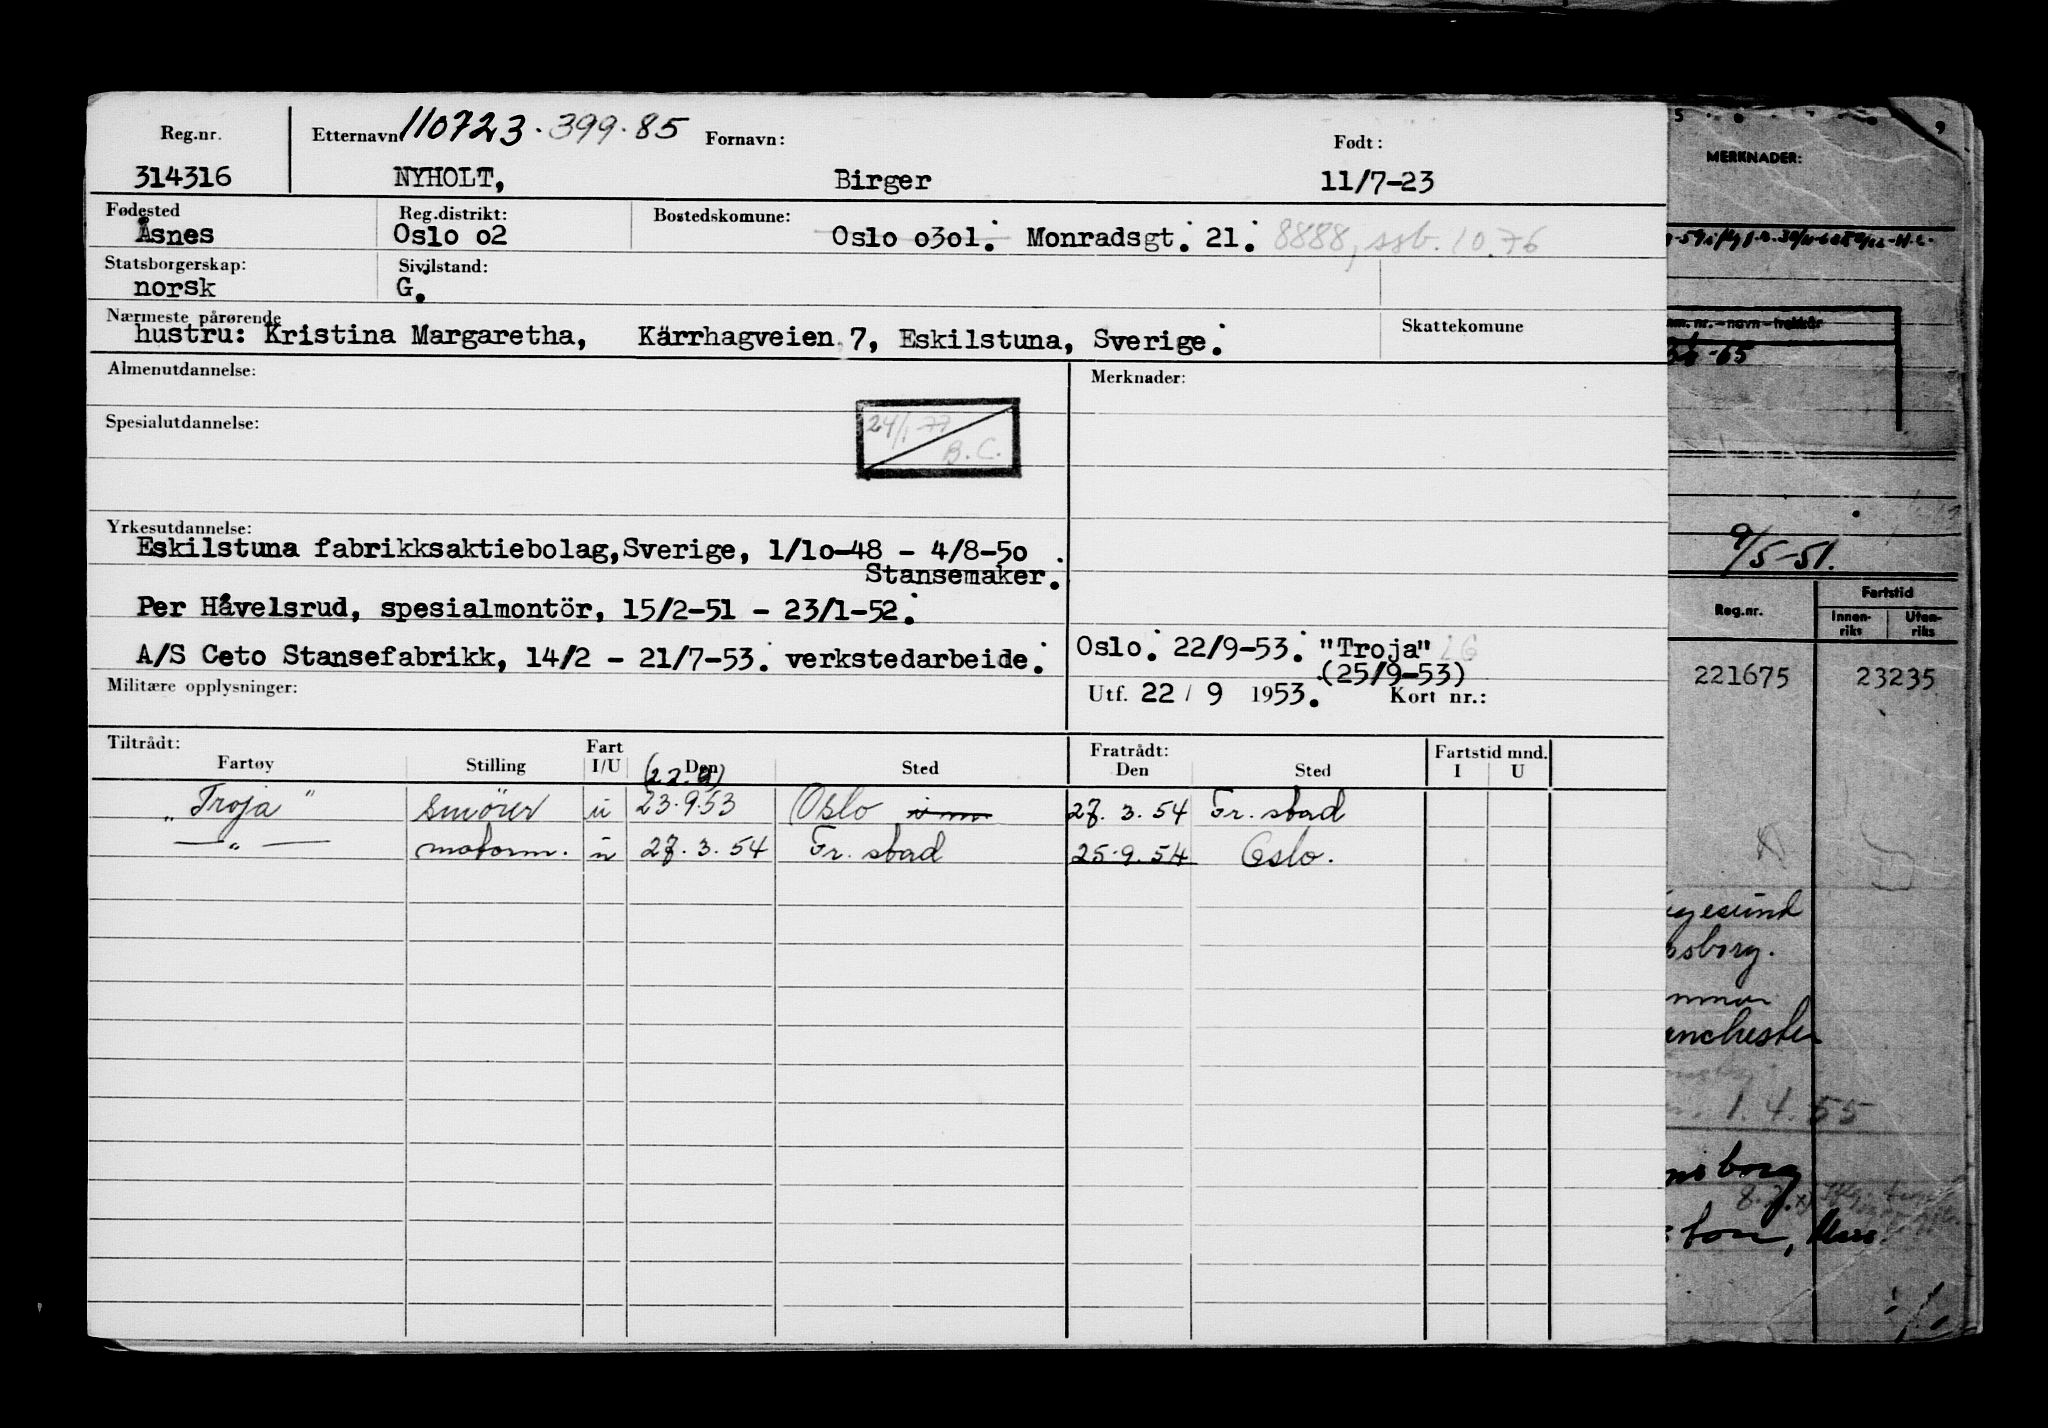 Reg.nr. Etternavn 110723.399.85 Fornavn: Født:
314316 NYHOLT, Birger 11/7-23
Fødested Reg.distrikt: Bostedskomune:
Åsnes Oslo o2 Oslo o3o1. Monradsgt. 21. 8888, ssb. 10.76
Statsborgerskap: Sivilstand:
norsk G.
Nærmeste pårørende Skattekomune
hustru: Kristina Margaretha, Kärrhagveien 7, Eskilstuna, Sverige.
Almenutdannelse: Merknader:
Spesialutdannelse:
24/1 77
B. C.
Yrkesutdannelse:
Eskilstuna fabrikksaktiebolag,Sverige, 1/1o-48 - 4/8-5o .
Stansemaker.
Per Håvelsrud, spesialmontör, 15/2-51 - 23/1-52.
A/S Ceto Stansefabrikk, 14/2 - 21/7-53. verkstedarbeide.
Oslo. 22/9-53. "Troja"
(25/9-53)
Militære opplysninger: Utf. 22 / 9 1953. Kort nr.:
Tiltrådt: Fart Fratrådt: Fartstid mnd.
Fartøy Stilling I/U Den Sted Den Sted I U
(22.9)
"Troja" smörer u 23.9.53 Oslo 27.3.54 Fr.stad
—"— motorm. u 27.3.54 Fr.stad 25.9.54 Oslo.
MERKNADER:
-65
9/5-51.
Reg.nr. Fartstid
Innen-riks Uten-riks
221675 23235
gesund
sborg.
anchester
1.4.55
borg
ton,